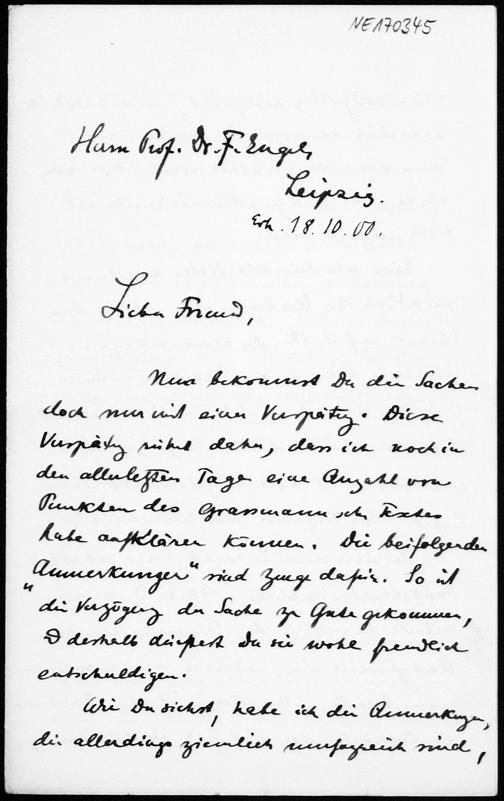 NE170345
Herrn Prof. Dr. F. Engel,
Leipzig.
Erh. 18.10.00.
Lieber Freund,
Nun bekommst Du die Sachen
doch nur mit einer Verspätg. Diese
Verspätg rührt daher, dass ich noch in
den allerletzten Tagen eine Anzahl von
Punkten des Grassmann'schen Textes
habe aufklären können. Die beifolgenden
„Anmerkungen“ sind Zeuge dafür. So ist
die Verzögerg der Sache zu Gute gekommen,
& deshalb dürftest Du sie wohl freundlich
entschuldigen.
Wie Du siehst, habe ich die Anmerkungen,
die allerdings ziemlich umfangreich sind,